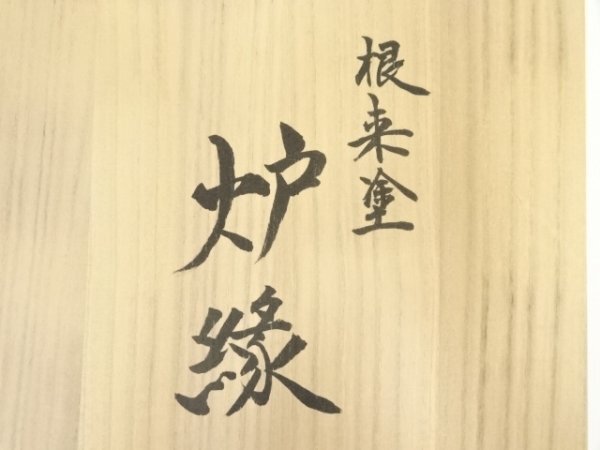 根来塗
炉縁